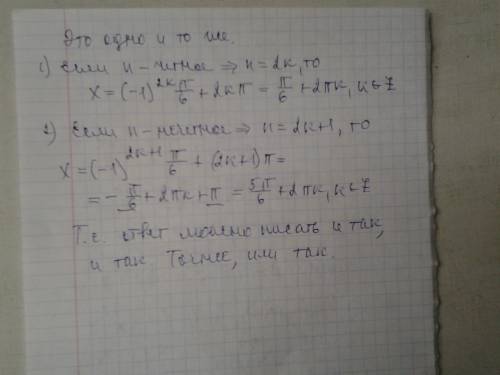 Это одно и то же.
1) Если n - четное ⇒ n = 2k, то
x = (-1)^{2k} π/6 + 2kπ = π/6 + 2πk, k∈Z
2) Если n - нечетное ⇒ n = 2k+1, то
x = (-1)^{2k+1} π/6 + (2k+1)π =
= - π/6 + 2πk + π = 5π/6 + 2πk, k∈Z
Т.е. ответ можно писать и так,
и так. Точнее, или так.